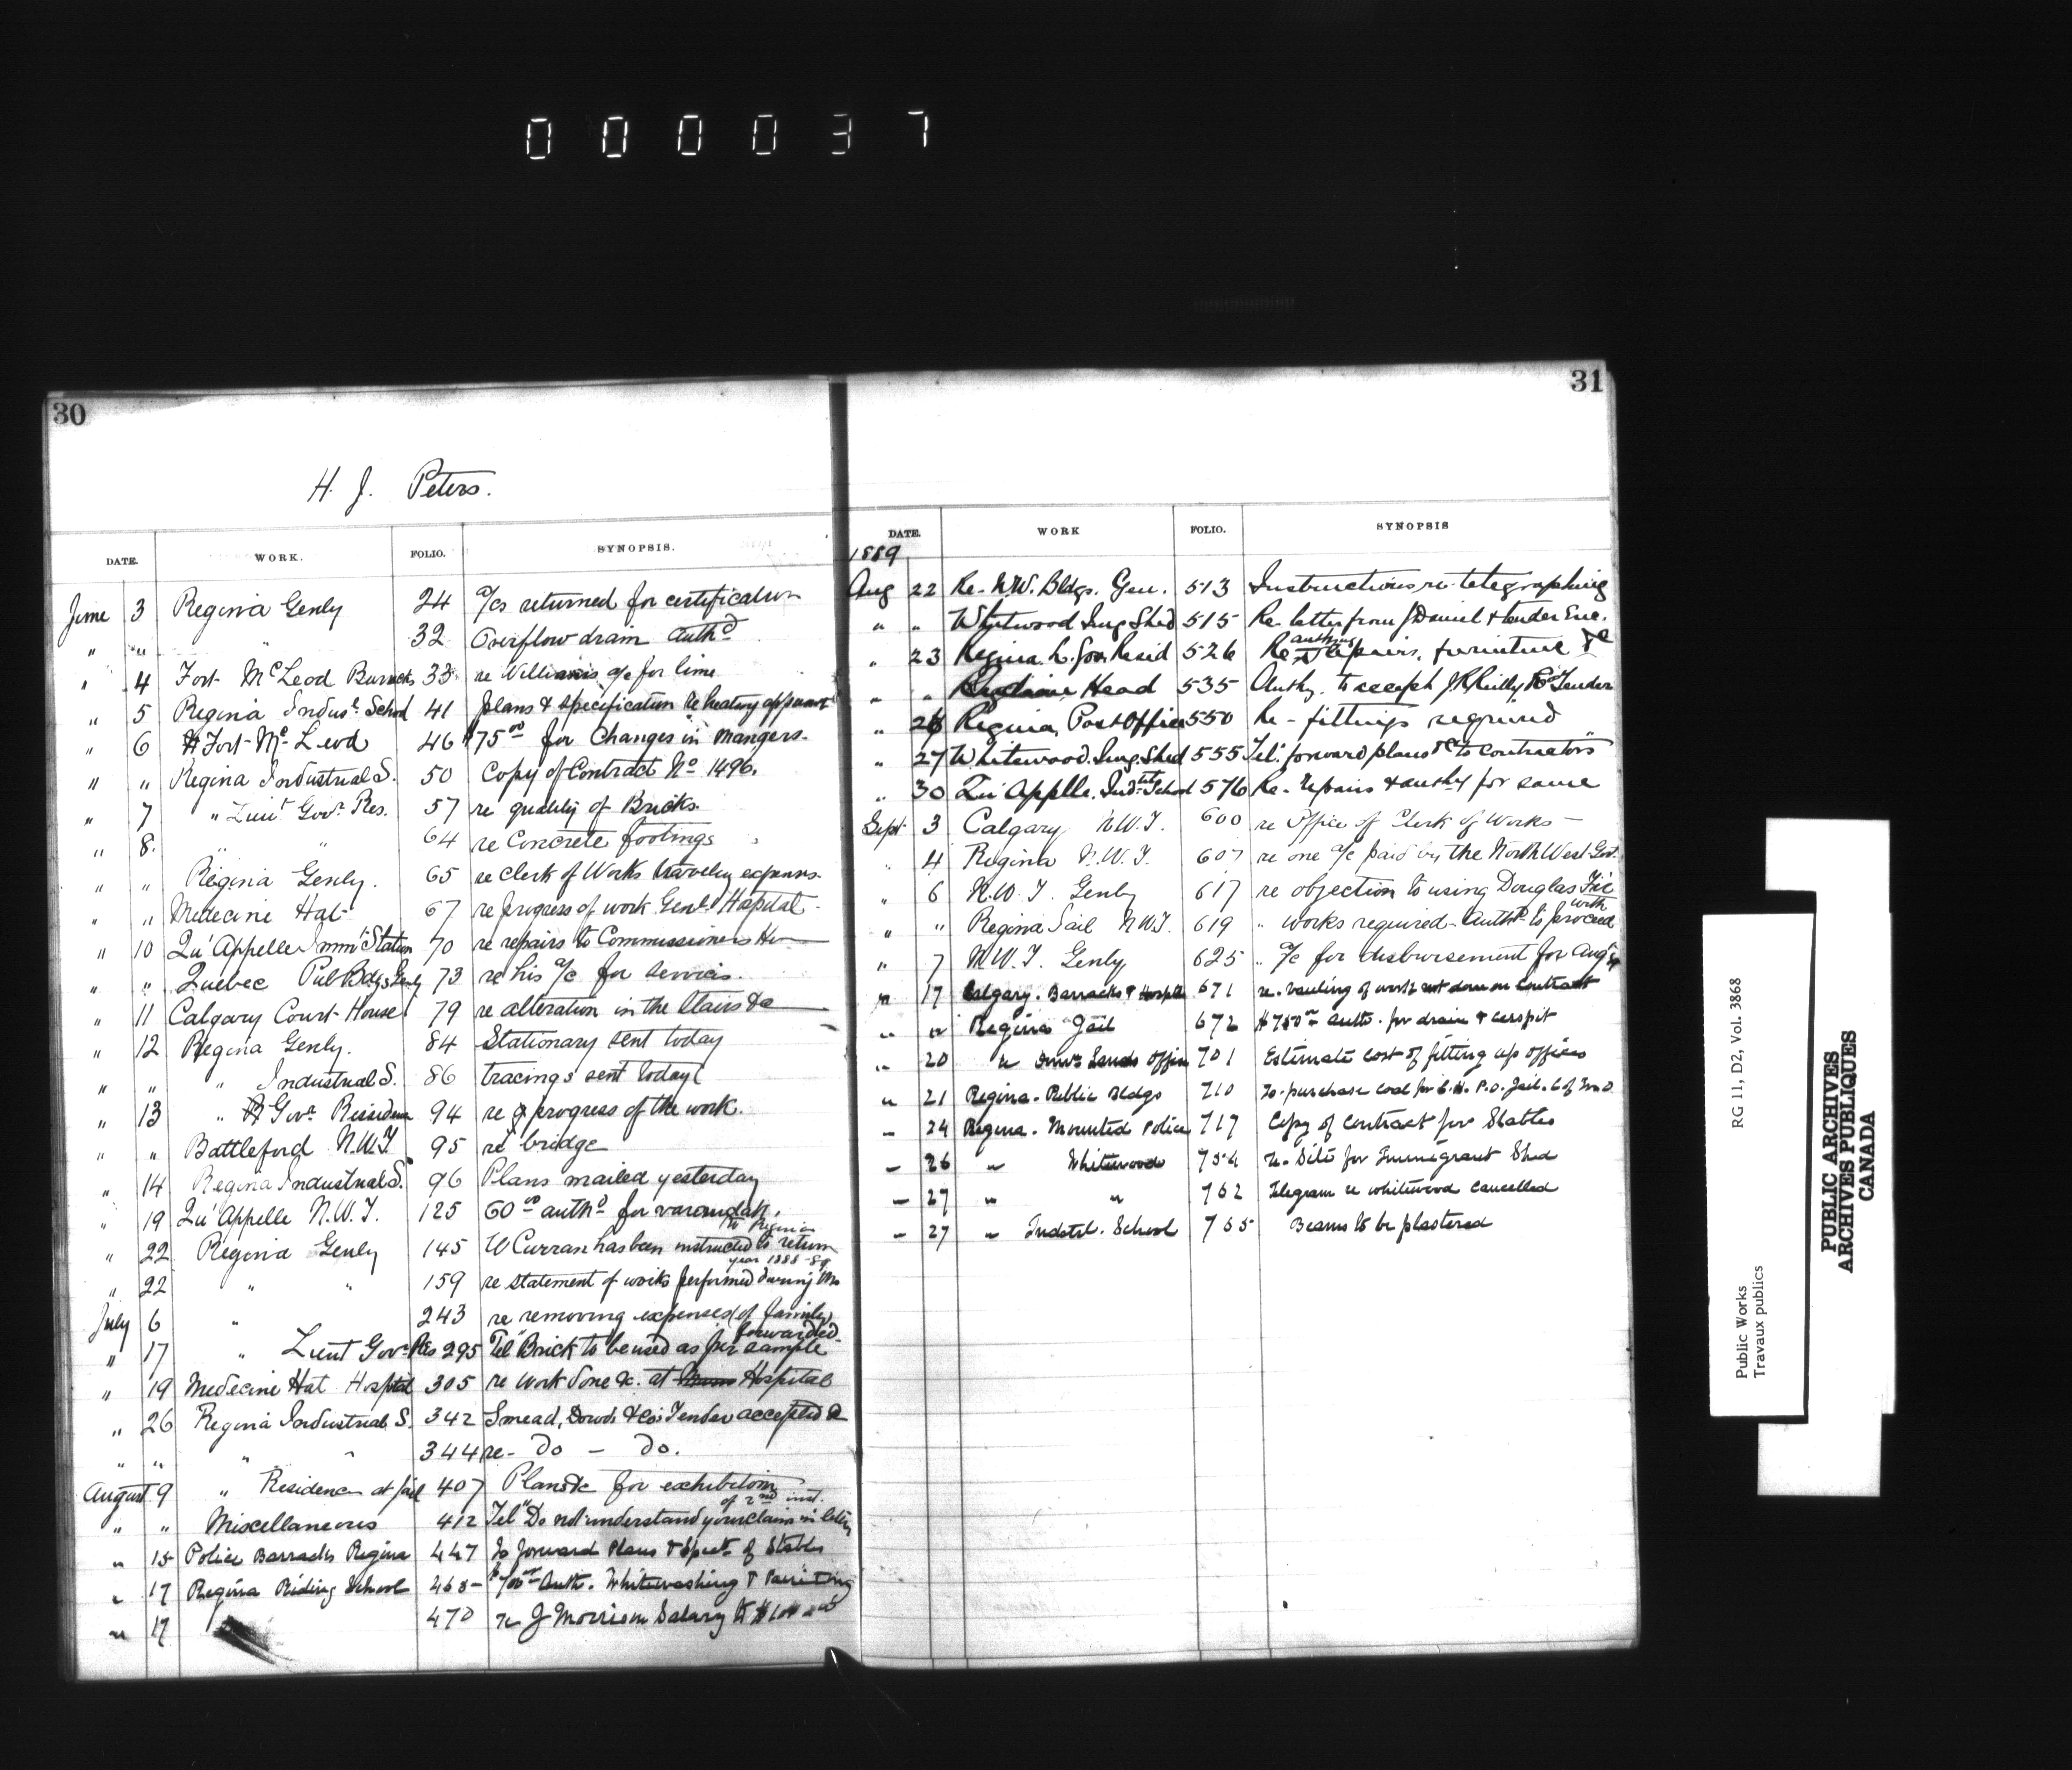 000037
30
H. J. Peters.
DATE. WORK. FOLIO. SYNOPSIS.
June 3 Regina Genly 24 a/cs returned for certification
" " " 32 Overflow drain authd
" 4 Fort McLeod Barracks 33 re Williams a/c for lime
" 5 Regina Indust. School 41 plans & specification re heating apparat
" 6 Fort Mc Leod 46 $75 00 for Changes in mangers.
" " Regina Industrial S. 50 Copy of Contract No 1496.
" 7 " Lieut Govr Res. 57 re quality of Bricks.
" 8. " " 64 re Concrete footings
" " Regina Genly. 65 re Clerk of Works traveling expenses.
" " Medecine Hat 67 re progress of work Genl Hospital
" 10 Qu'Appelle Immt Station 70 re repairs to Commissioners Ho
" " Quebec Pub Bdgs Genly 73 re his a/c for services.
" 11 Calgary Court House 79 re alteration in the Stairs &c
" 12 Regina Genly. 84 Stationary sent today
" " " Industrial S. 86 tracings sent today
" 13 " Govr Residence 94 re progress of the work.
" " Battleford N.W.T 95 re bridge
" 14 Regina Industrial S. 96 Plans mailed yesterday
" 19 Qu'Appelle N.W.T. 125 60 00 authd for varandah.
to Regina
" 22 Regina Genly 145 W Curran has been instructed to return
year 1888-89
" 22 " " 159 re statement of works performed during the
July 6 " 243 re removing expenses (of family)
forwarded
" 17 " Lieut Govr Res 295 Tel "Brick to be used as per sample
" 19 Medecine Hat Hospital 305 re work done &c. at Hospital
" 26 Regina Industrial S. 342 Smead, Dowd & Co's Tender accepted
" " " " 344 re- do - do.
August 9 " Residence at Jail 407 Plans &c for exhibition
of 2nd inst.
" " Miscellaneous 412 Tel "Do not understand your claim in letter
" 15 Police Barracks Regina 447 To forward Plans & Spect. of Stables
" 17 Regina Riding School 468 - Auth. Whitewashing & Painting
" 17 470 re J Morrison Salary
31
DATE. WORK FOLIO. SYNOPSIS
1889
Aug 22 Re. N.W. Bldgs. Gen. 513 Instructions re telegraphing
" " Whitwood Img Shed 515 Re letter from J Daniel & tender Enc.
authng
" 23 Regina L. Gov Resid 526 Re repairs, furniture &c
" " Head 535 Authy. to accept J. Reilly Tender
" 26 Regina Post Office 550 Re - fittings required
" 27 Whitewood. Img. Shed 555 Tel: forward plans &c to contractors
" 30 Qu'Applle. Indtl School 576 Re - repairs & authy for same
Sept 3 Calgary N.W.T. 600 re Office of Clerk of Works -
" 4 Regina N.W.T. 607 re one a/c paid by the North West Govt.
" 6 N.W.T. Genly 617 re objection to using Douglas Fir
with
" " Regina Jail N.W.T. 619 " works required - Authy to proceed
" 7 N.W.T. Genly 625 " a/c for disbursement for Aug
" 17 Calgary. Barracks & Hospital 671 re. of work not done on contract
" " Regina Jail 672 $750 00 auth. for drain & cesspit
" 20 " Lands Office 701 Estimate cost of fitting up offices
" 21 Regina. Public Bldgs 710 To purchase coal for C.H. P.O. Jail.
" 24 Regina. Mounted Police 717 Copy of contract for Stables
" 26 " Whitewood 754 re. Site for Immigrant Shed
" 27 " " 762 Telegram re Whitwood cancelled
" 27 " Indstl. School 765 Beams to be plastered
RG 11, D2, Vol. 3868
Public Works
Travaux publics
PUBLIC ARCHIVES
ARCHIVES PUBLIQUES
CANADA